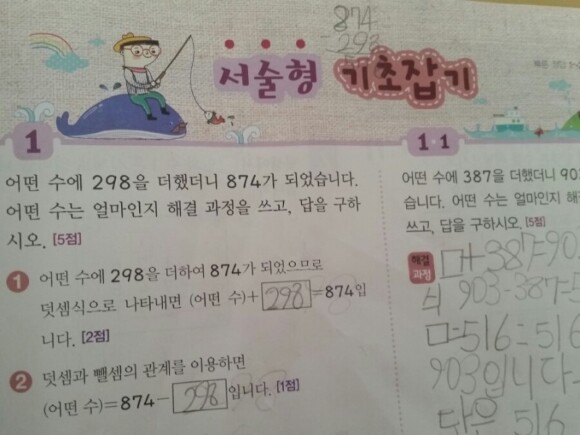 874
298
서술형 기초잡기
1
어떤 수에 298을 더했더니 874가 되었습니다.
어떤 수는 얼마인지 해결 과정을 쓰고, 답을 구하
시오. [5점]
1 어떤 수에 298을 더하여 874가 되었으므로
덧셈식으로 나타내면 (어떤 수)+298=874입
니다. [2점]
2 덧셈과 뺄셈의 관계를 이용하면
(어떤 수)=874-298입니다. [1점]
1·1
어떤 수에 387을 더했더니 90
습니다. 어떤 수는 얼마인지
쓰고, 답을 구하시오. [5점]
해결
과정
□+387=90
식 903-387=5
□=516=516
903입니다
답은 516